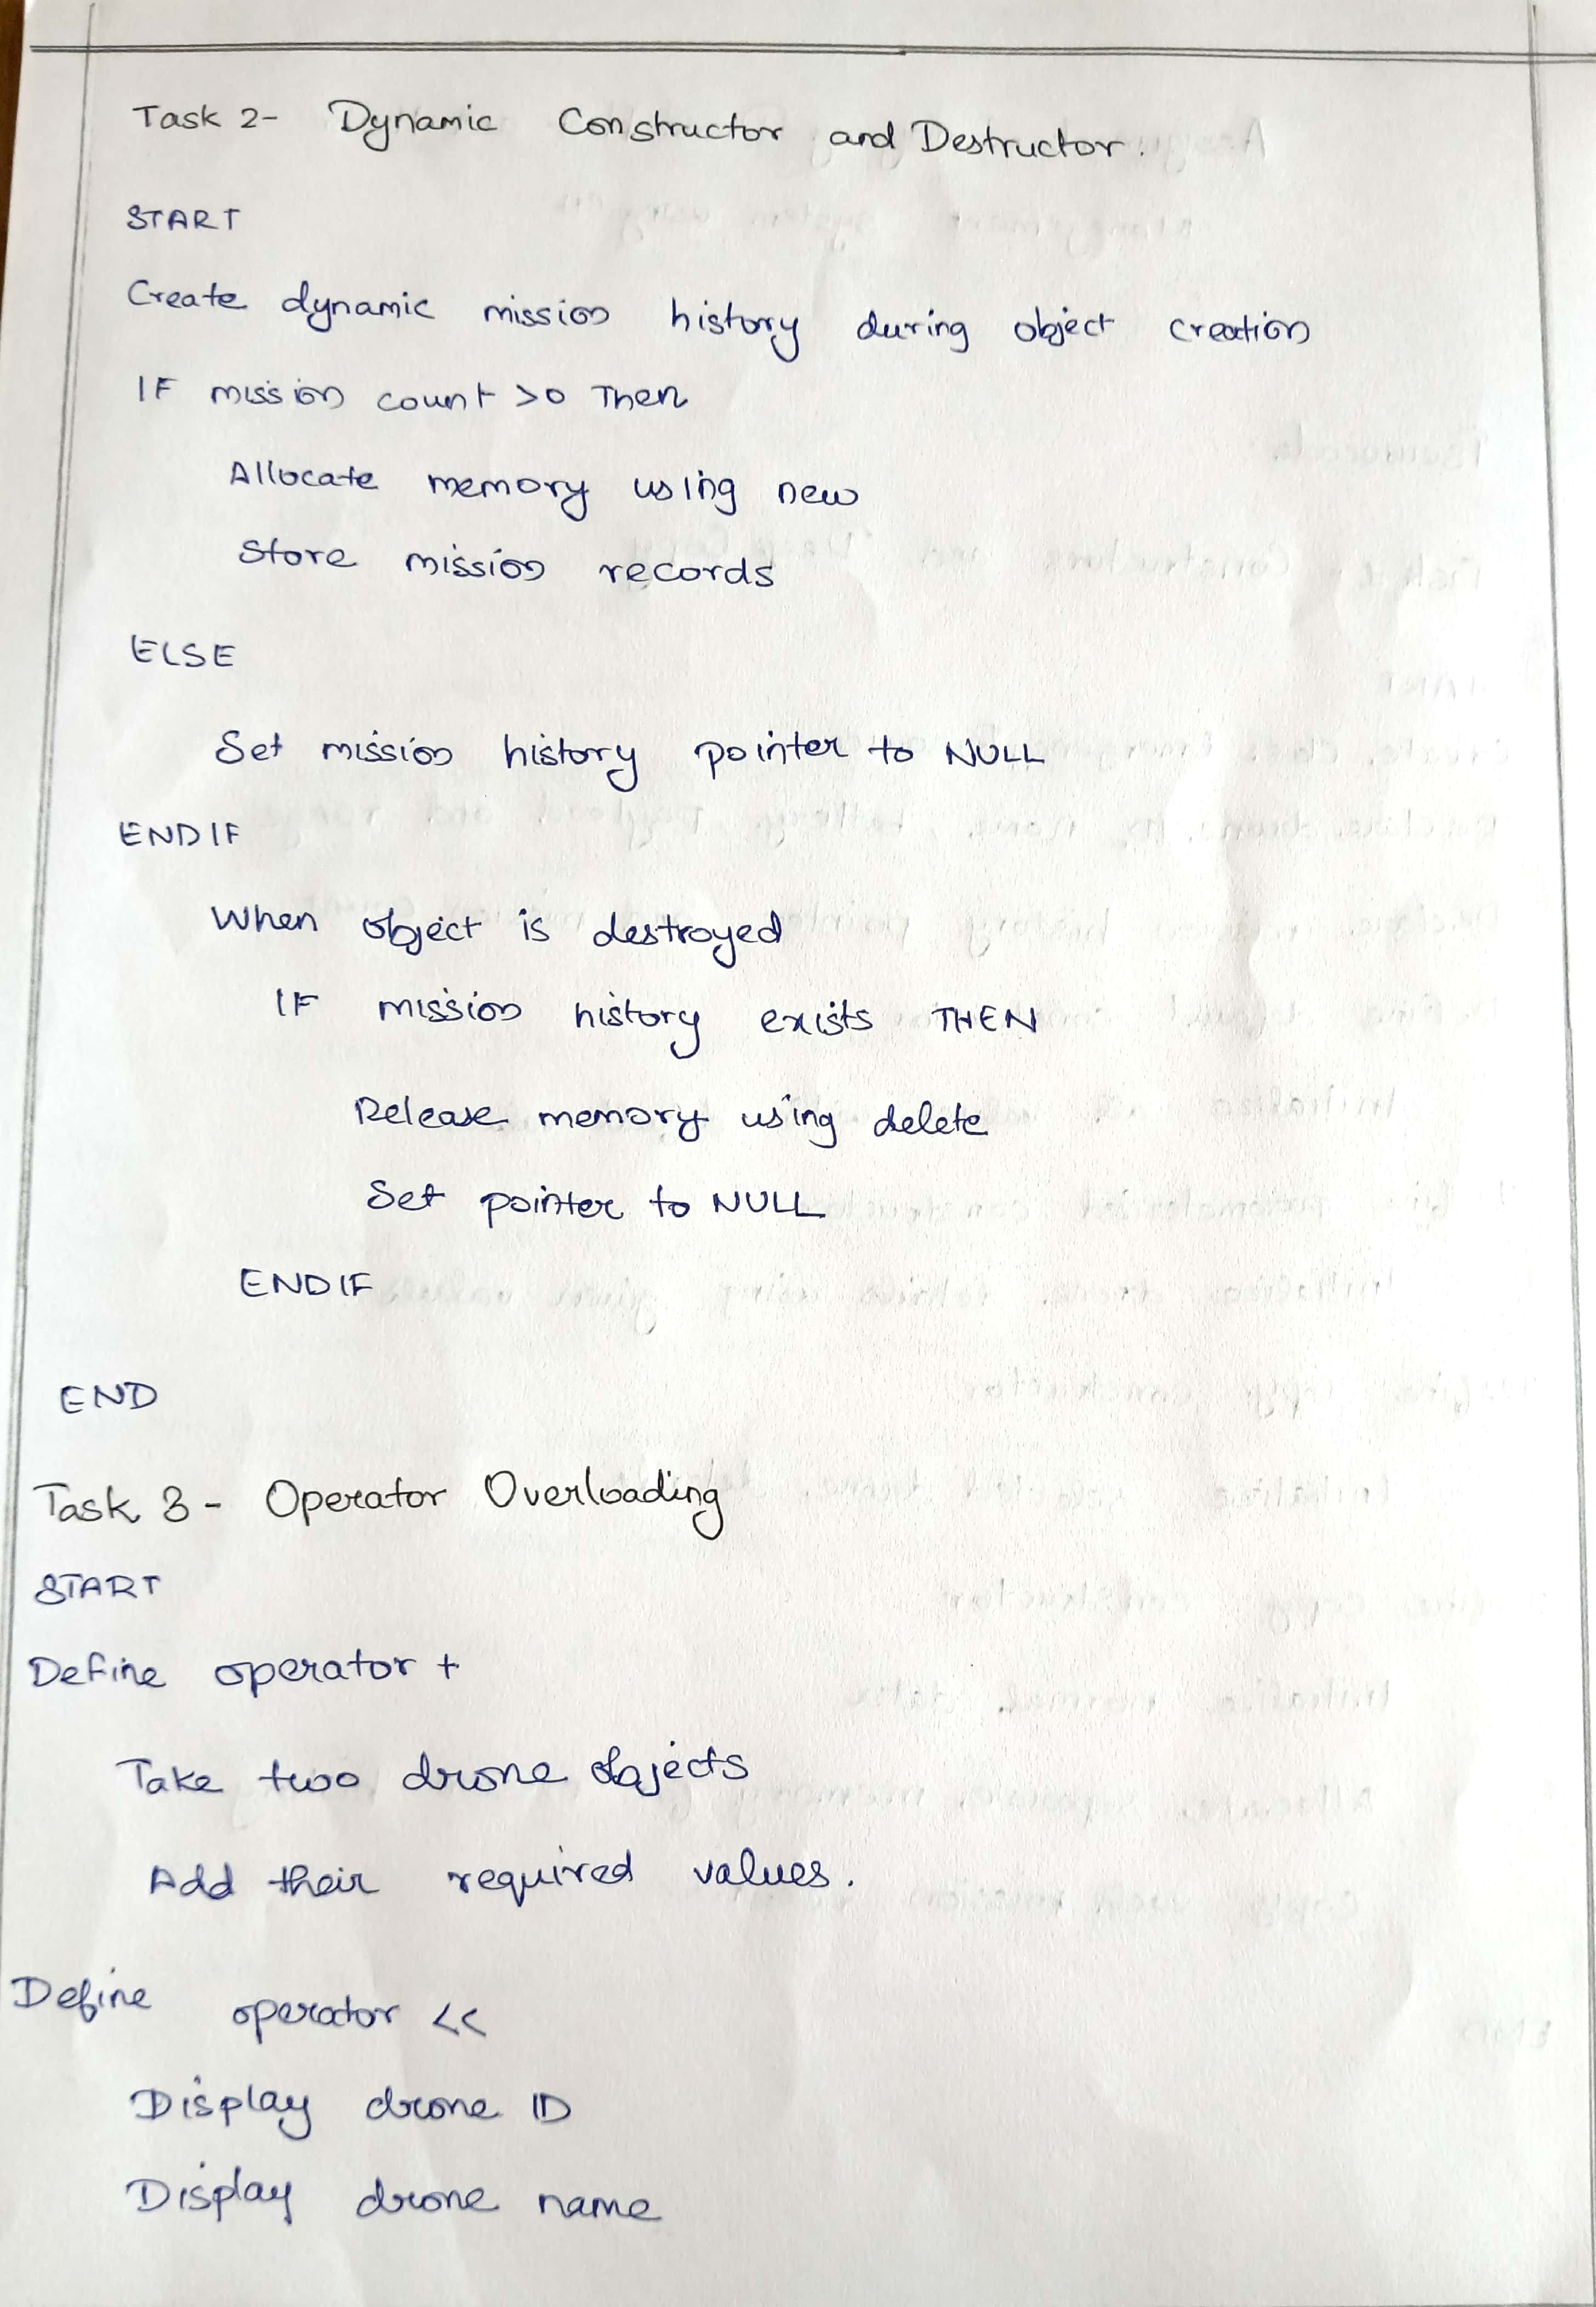 Task 2- Dynamic Constructor and Destructor.
START
Create dynamic mission history during object creation
IF mission count >0 Then
Allocate memory using new
Store mission records
ELSE
Set mission history pointer to NULL
ENDIF
When object is destroyed
IF mission history exists THEN
Release memory using delete
Set pointer to NULL
ENDIF
END
Task 3 - Operator Overloading
START
Define operator +
Take two drone objects
Add their required values.
Define operator <<
Display drone ID
Display drone name